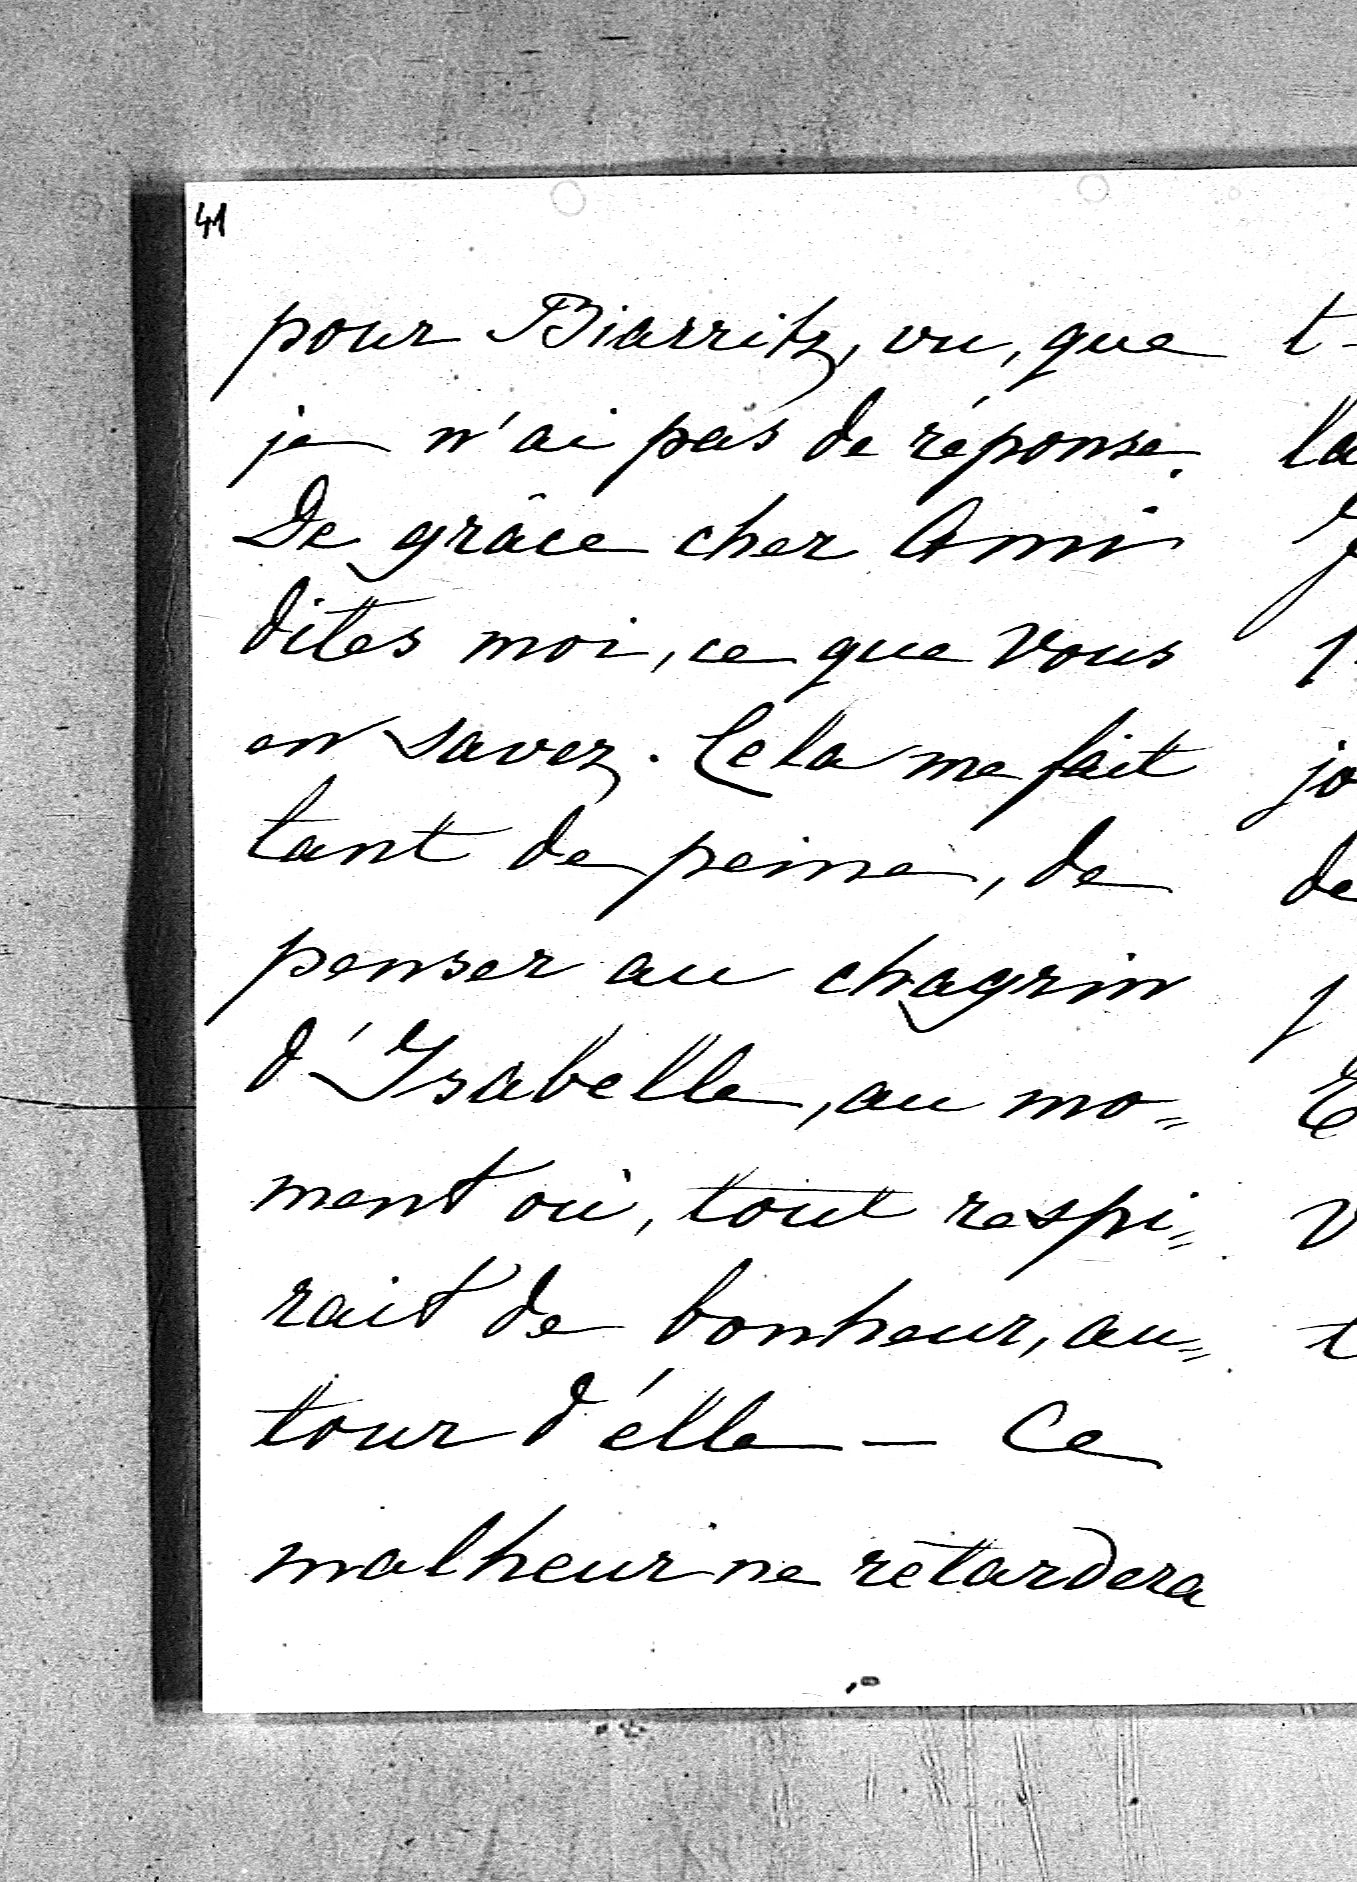 41
pour Biarritz, vu, que
je n'ai pas de réponse.
De grâce cher Ami
dites moi, ce que Vous
en savez. Cela me fait
tant de peine, de
penser au chagrin
d'Isabelle, au mo=
ment où, tout respi=
rait de bonheur, au=
tour d'élle — Ce
malheur ne retardera